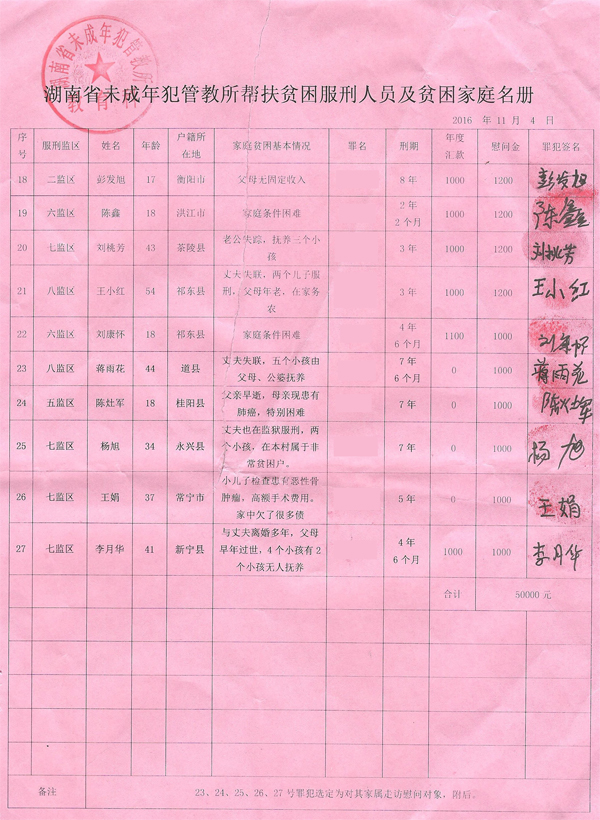 湖南省未成年犯管教所
教育科
湖南省未成年犯管教所帮扶贫困服刑人员及贫困家庭名册
2016 年 11 月 4 日
序号 服刑监区 姓名 年龄 户籍所在地 家庭贫困基本情况 罪名 刑期 年度汇款 慰问金 罪犯签名
18 二监区 彭发旭 17 衡阳市 父母无固定收入 8 年 1000 1200 彭发旭
19 六监区 陈鑫 18 洪江市 家庭条件困难 2 年 2 个月 1000 1200 陈鑫
20 七监区 刘桃芳 43 茶陵县 老公失踪，抚养三个小孩 3 年 1000 1200 刘桃芳
21 八监区 王小红 54 祁东县 丈夫失联，两个儿子服刑，父母年老，在家务农 3 年 1000 1200 王小红
22 六监区 刘康怀 18 祁东县 家庭条件困难 4 年 6 个月 1100 1000 刘康怀
23 八监区 蒋雨花 44 道县 丈夫失联，五个小孩由父母、公婆抚养 7 年 6 个月 0 1000 蒋雨花
24 五监区 陈灶军 18 桂阳县 父亲早逝，母亲现患有肺癌，特别困难 7 年 0 1000 陈灶军
25 七监区 杨旭 34 永兴县 丈夫也在监狱服刑，两个小孩，在本村属于非常贫困户。 7 年 0 1000 杨旭
26 七监区 王娟 37 常宁市 小儿子检查患有恶性骨肿瘤，高额手术费用。家中欠了很多债 5 年 0 1000 王娟
27 七监区 李月华 41 新宁县 与丈夫离婚多年，父母早年过世，4 个小孩有 2 个小孩无人抚养 4 年 6 个月 1000 1000 李月华
合计 50000 元
备注 23、24、25、26、27 号罪犯选定为对其家属走访慰问对象，附后。